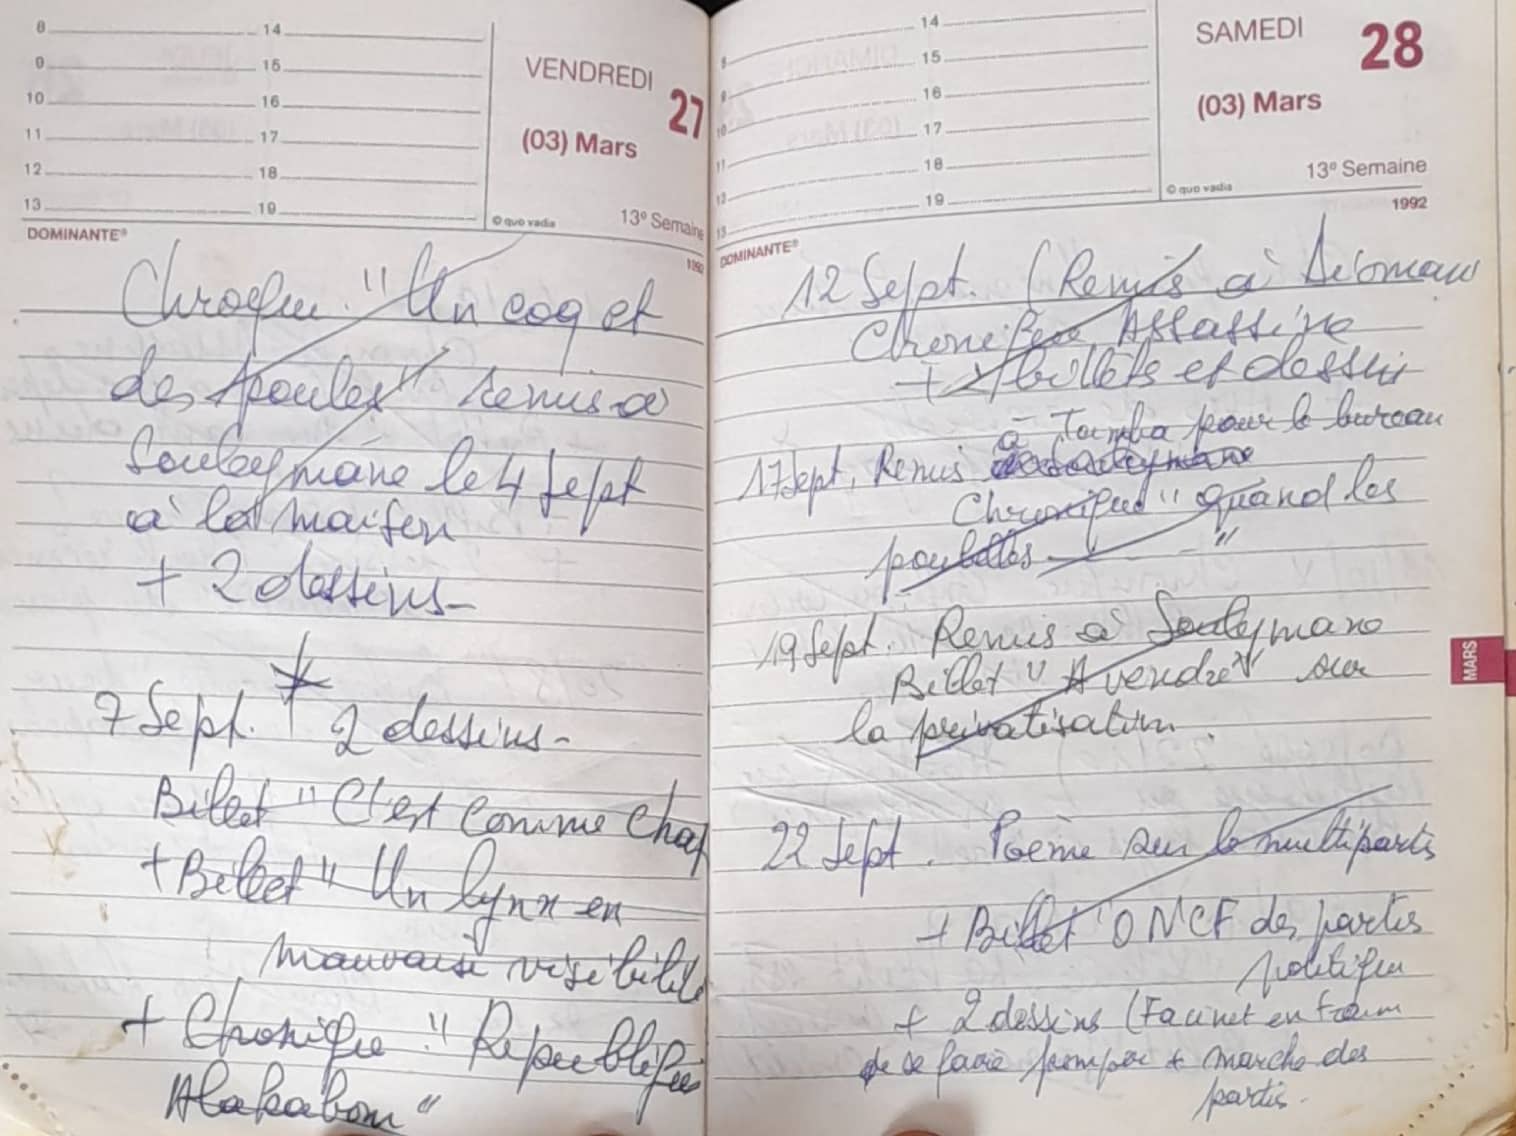 8 14
9 15
10 16
11 17
12 18
13 19
VENDREDI 27
(03) Mars
© quo vadis 13e Semaine
DOMINANTE® 1992
Chronique "Un coq et
des poules" remis à
Souleymane le 4 Sept
à la maison
+ 2 dessins -
7 Sept. 2 dessins -
Billet "C'est comme chat
+ Billet "Un lynx en
mauvaise visibilité
+ Chronique "République
Alakabon"
8 14
9 15
10 16
11 17
12 18
13 19
SAMEDI 28
(03) Mars
13e Semaine
© quo vadis
1992
DOMINANTE®
12 Sept. (Remis à
Chronique Assassine
+ 2 billets et dessin
- à Tamba pour le bureau
17 Sept. Remis à Souleymane
Chronique "quand les
poubelles - - "
19 Sept. Remis à Souleymane
Billet "A vendre" sur
la privatisation.
22 Sept. Poème sur le multipartis
+ Billet "ONCF des partis
politique
+ 2 dessins (Facinet en
de se faire pomper + marche des
partis.
MARS